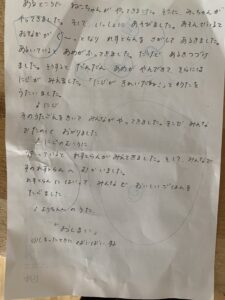 あるところに ねこちゃんが やってきました。そこに みーちゃんが
やってきました。そして いっしょに あそびました。あそんでいると
おなかが ぐ〜っ となり れすとらんを さがして あるきました。
あるいていると あめがふってきました。だけど あるきつづけ
ました。そうすると だんだん あめが やんできて そらには
にじが みえました。「にじが きれいだね!」と うたを
うたいました。
♪にじ
そのうたごえをきいて みんなが やってきました。そこで みんな
おたのしく おどりました
♪にじのむこうに
いると れすとらんが みえてきました。そして、みんなで
そのれすとらんへ むかいました。
れすとらんに はいって、みんなで おいしいごはんを
たべました
のうた
「おしまい」